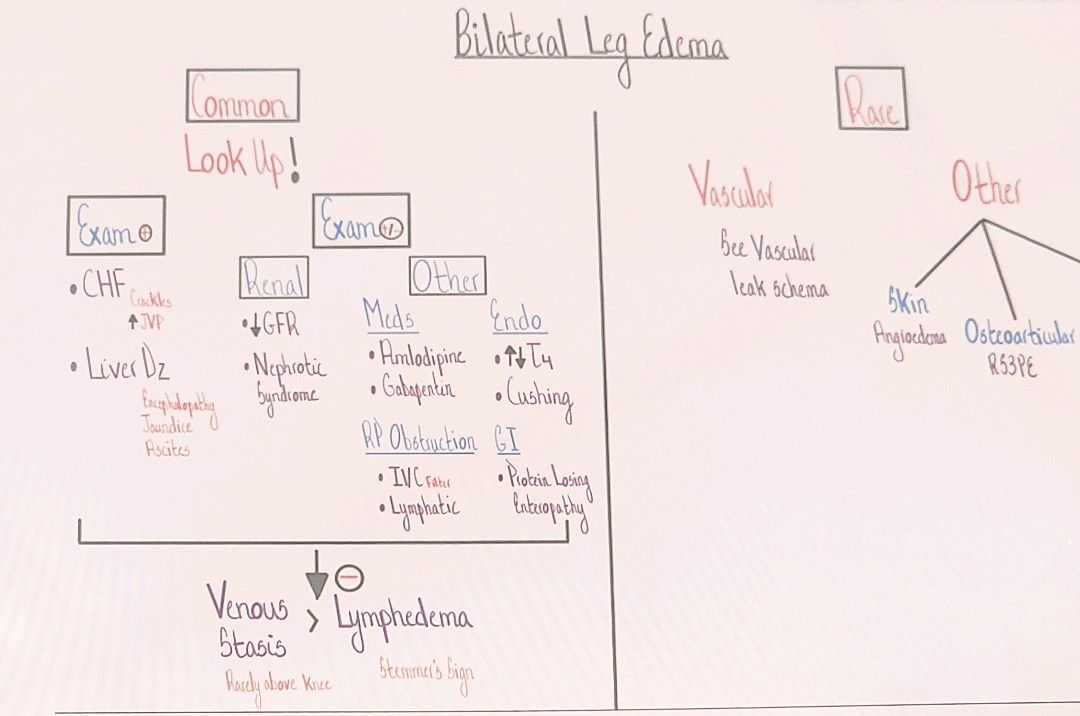 Bilateral Leg Edema
Common
Look Up!
Exam ⊕
• CHF
Crackles
↑ JVP
• Liver Dz
Encephalopathy
Jaundice
Ascites
Exam +/-
Renal
• ↓GFR
• Nephrotic
Syndrome
Other
Meds
• Amlodipine
• Gabapentin
Endo
• ↑↓ T4
• Cushing
RP Obstruction
• IVC Filter
• Lymphatic
GI
• Protein Losing
Enteropathy
⊖
Venous
Stasis
>
Lymphedema
Rarely above Knee
Stemmer's Sign
Rare
Vascular
See Vascular
leak schema
Other
Skin
Angioedema
Osteoarticular
RS3PE